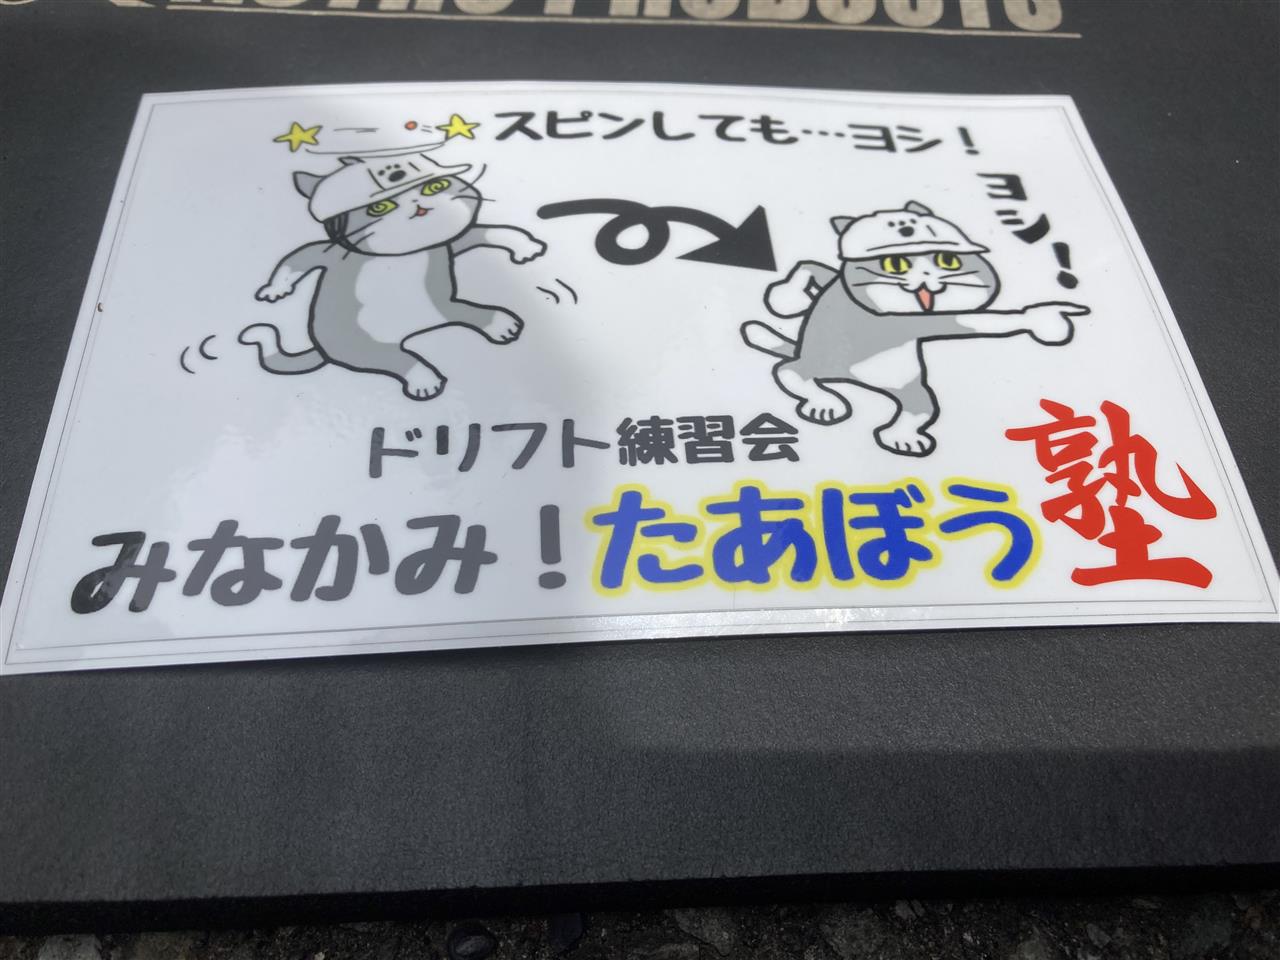 PRODUCTS
スピンしても…ヨシ!
ヨシ!
ドリフト練習会
みなかみ!たあぼう塾